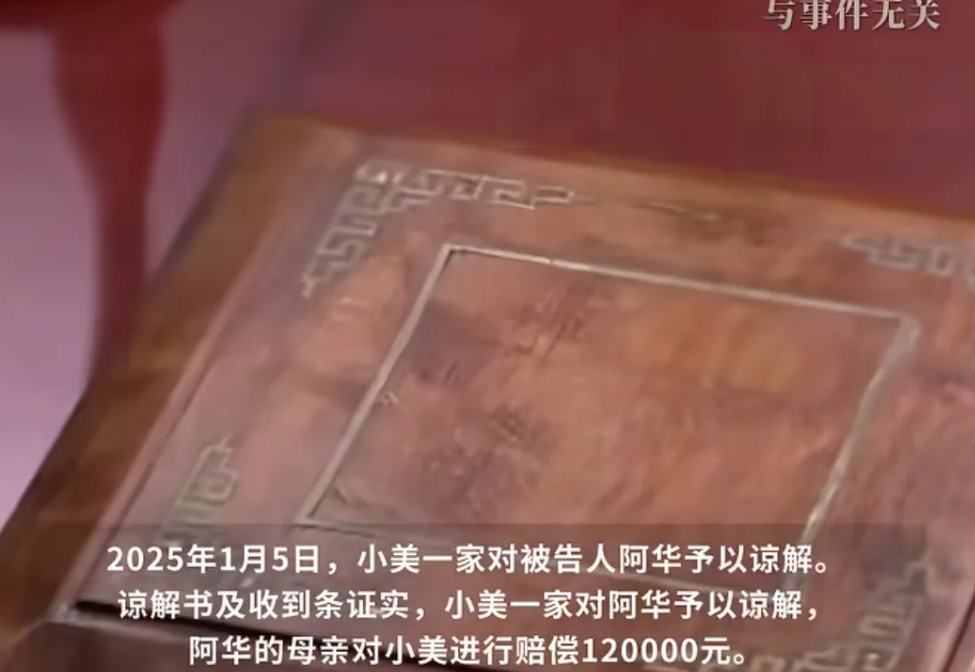 与事件无关
2025年1月5日，小美一家对被告人阿华予以谅解。
谅解书及收到条证实，小美一家对阿华予以谅解，
阿华的母亲对小美进行赔偿120000元。